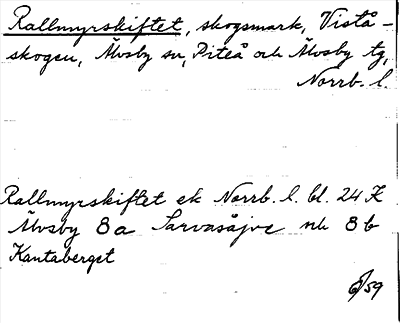 Rallmyrskiftet, skogsmark, Vistå-
skogen, Älvsby sn, Piteå och Älvsby tg,
Norrb. l.
Rallmyrskiftet ek Norrb. l. bl. 24 K
Älvsby 8a Sarvasåive och 8b
Kantaberget
6/59